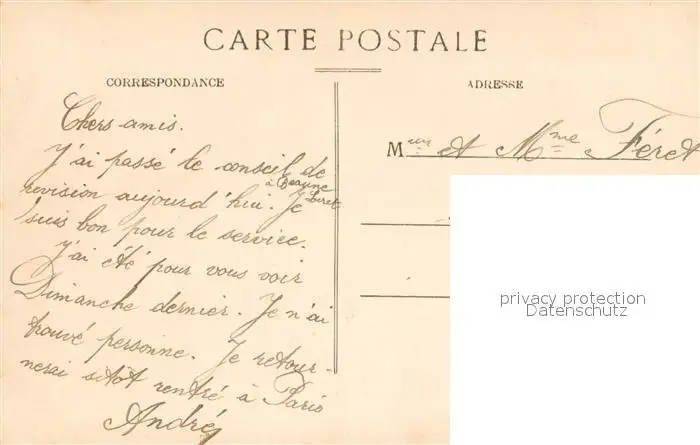 CARTE POSTALE
CORRESPONDANCE
ADRESSE
Chers amis.
J'ai passé le conseil de
à Beaune
revision aujourd'hui. Je
Loret
suis bon pour le service.
J'ai été pour vous voir
Dimanche dernier. Je n'ai
trouvé personne. Je retour-
nerai sitôt rentré à Paris
André
Meur et Mme Féret
privacy protection
Datenschutz